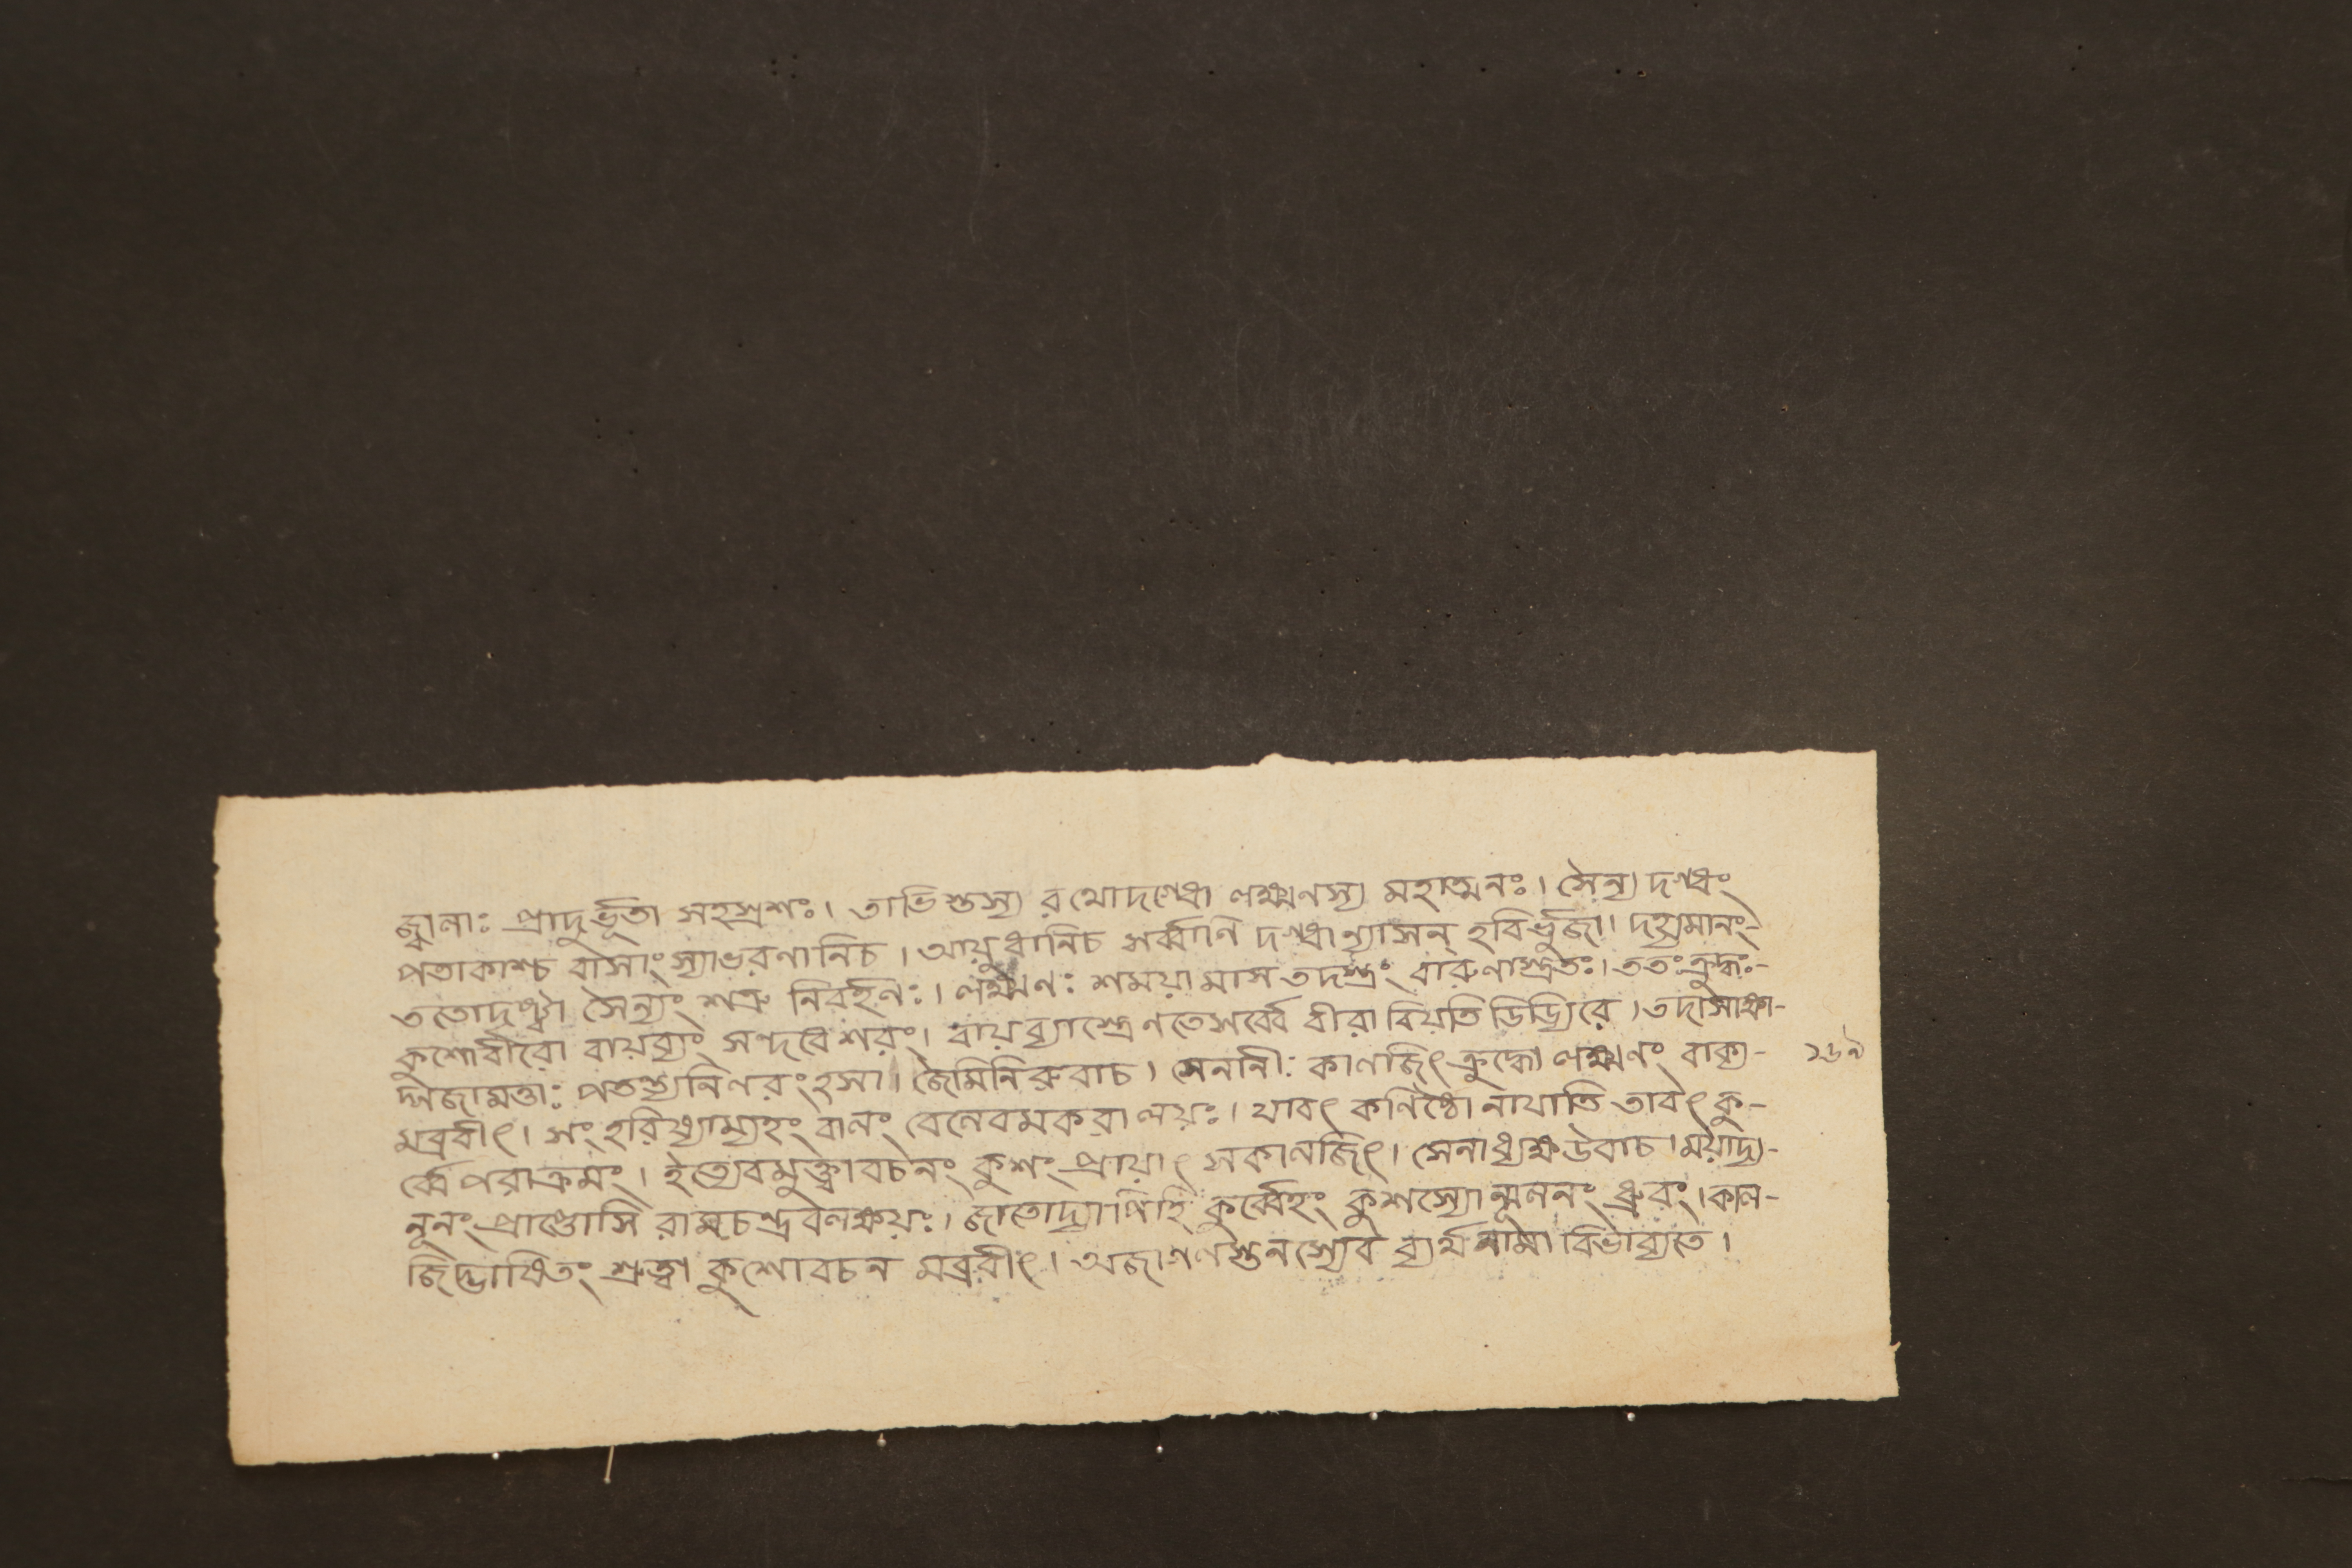 জ্বালাঃ প্রাদুর্ভূতা সহস্রশঃ। তাভিস্তস্য রথোদগ্ধো লক্ষ্মণস্য মহাত্মনঃ। সৈন্য দগ্ধং
পতাকাশ্চ বাসাংস্যাভরণানিচ। আয়ুধানিচ সর্ব্বাণি দগ্ধান্যাসন্ হবির্ভুজা। দহ্যমানং-
ততোদৃষ্ট্বা সৈন্যং শত্রু নিবর্হনঃ। লক্ষ্মণঃ শময়ামাস তদস্ত্রং বারুণাস্ত্রতঃ। ততঃক্রুদ্ধঃ-
কুশোবীরো বায়ব্যাং সন্দবে শরং। বায়ব্যাস্ত্রেণতেসর্ব্বে বীরা বিয়তি ডিড্যিরে। তদাসাশ্বা-
গজামত্তাঃ পতন্ত্যনিলরংহসা। জৈমিনিরুবাচ। সেনানীঃ কালজিৎ ক্রুদ্ধো লক্ষ্মণং বাক্য- ১৬৯
মব্রবীৎ। সংহরিষ্যাম্যহং বাণং বেলেবমকরালয়ঃ। যাবৎ কণিষ্ঠো নাযাতি তাবৎ কু-
র্ব্বে পরাক্রমং। ইত্যেবমুক্ত্বাবচনং কুশং প্রায়াৎ সকালজিৎ। সেনাধ্যক্ষউবাচ। ময়াদ্য-
নূনং প্রাপ্তোসি রামচন্দ্রবলক্ষয়ঃ। জাতোদ্যাপিহি কুর্ব্বেহং কুশস্যোন্মূলনং ধ্রুবং। কাল-
জিদ্ভাষিতং শ্রুত্বা কুশোবচন মব্রবীৎ। অজাগলস্তনস্যেব ব্যর্থনামা বিভাব্যতে।